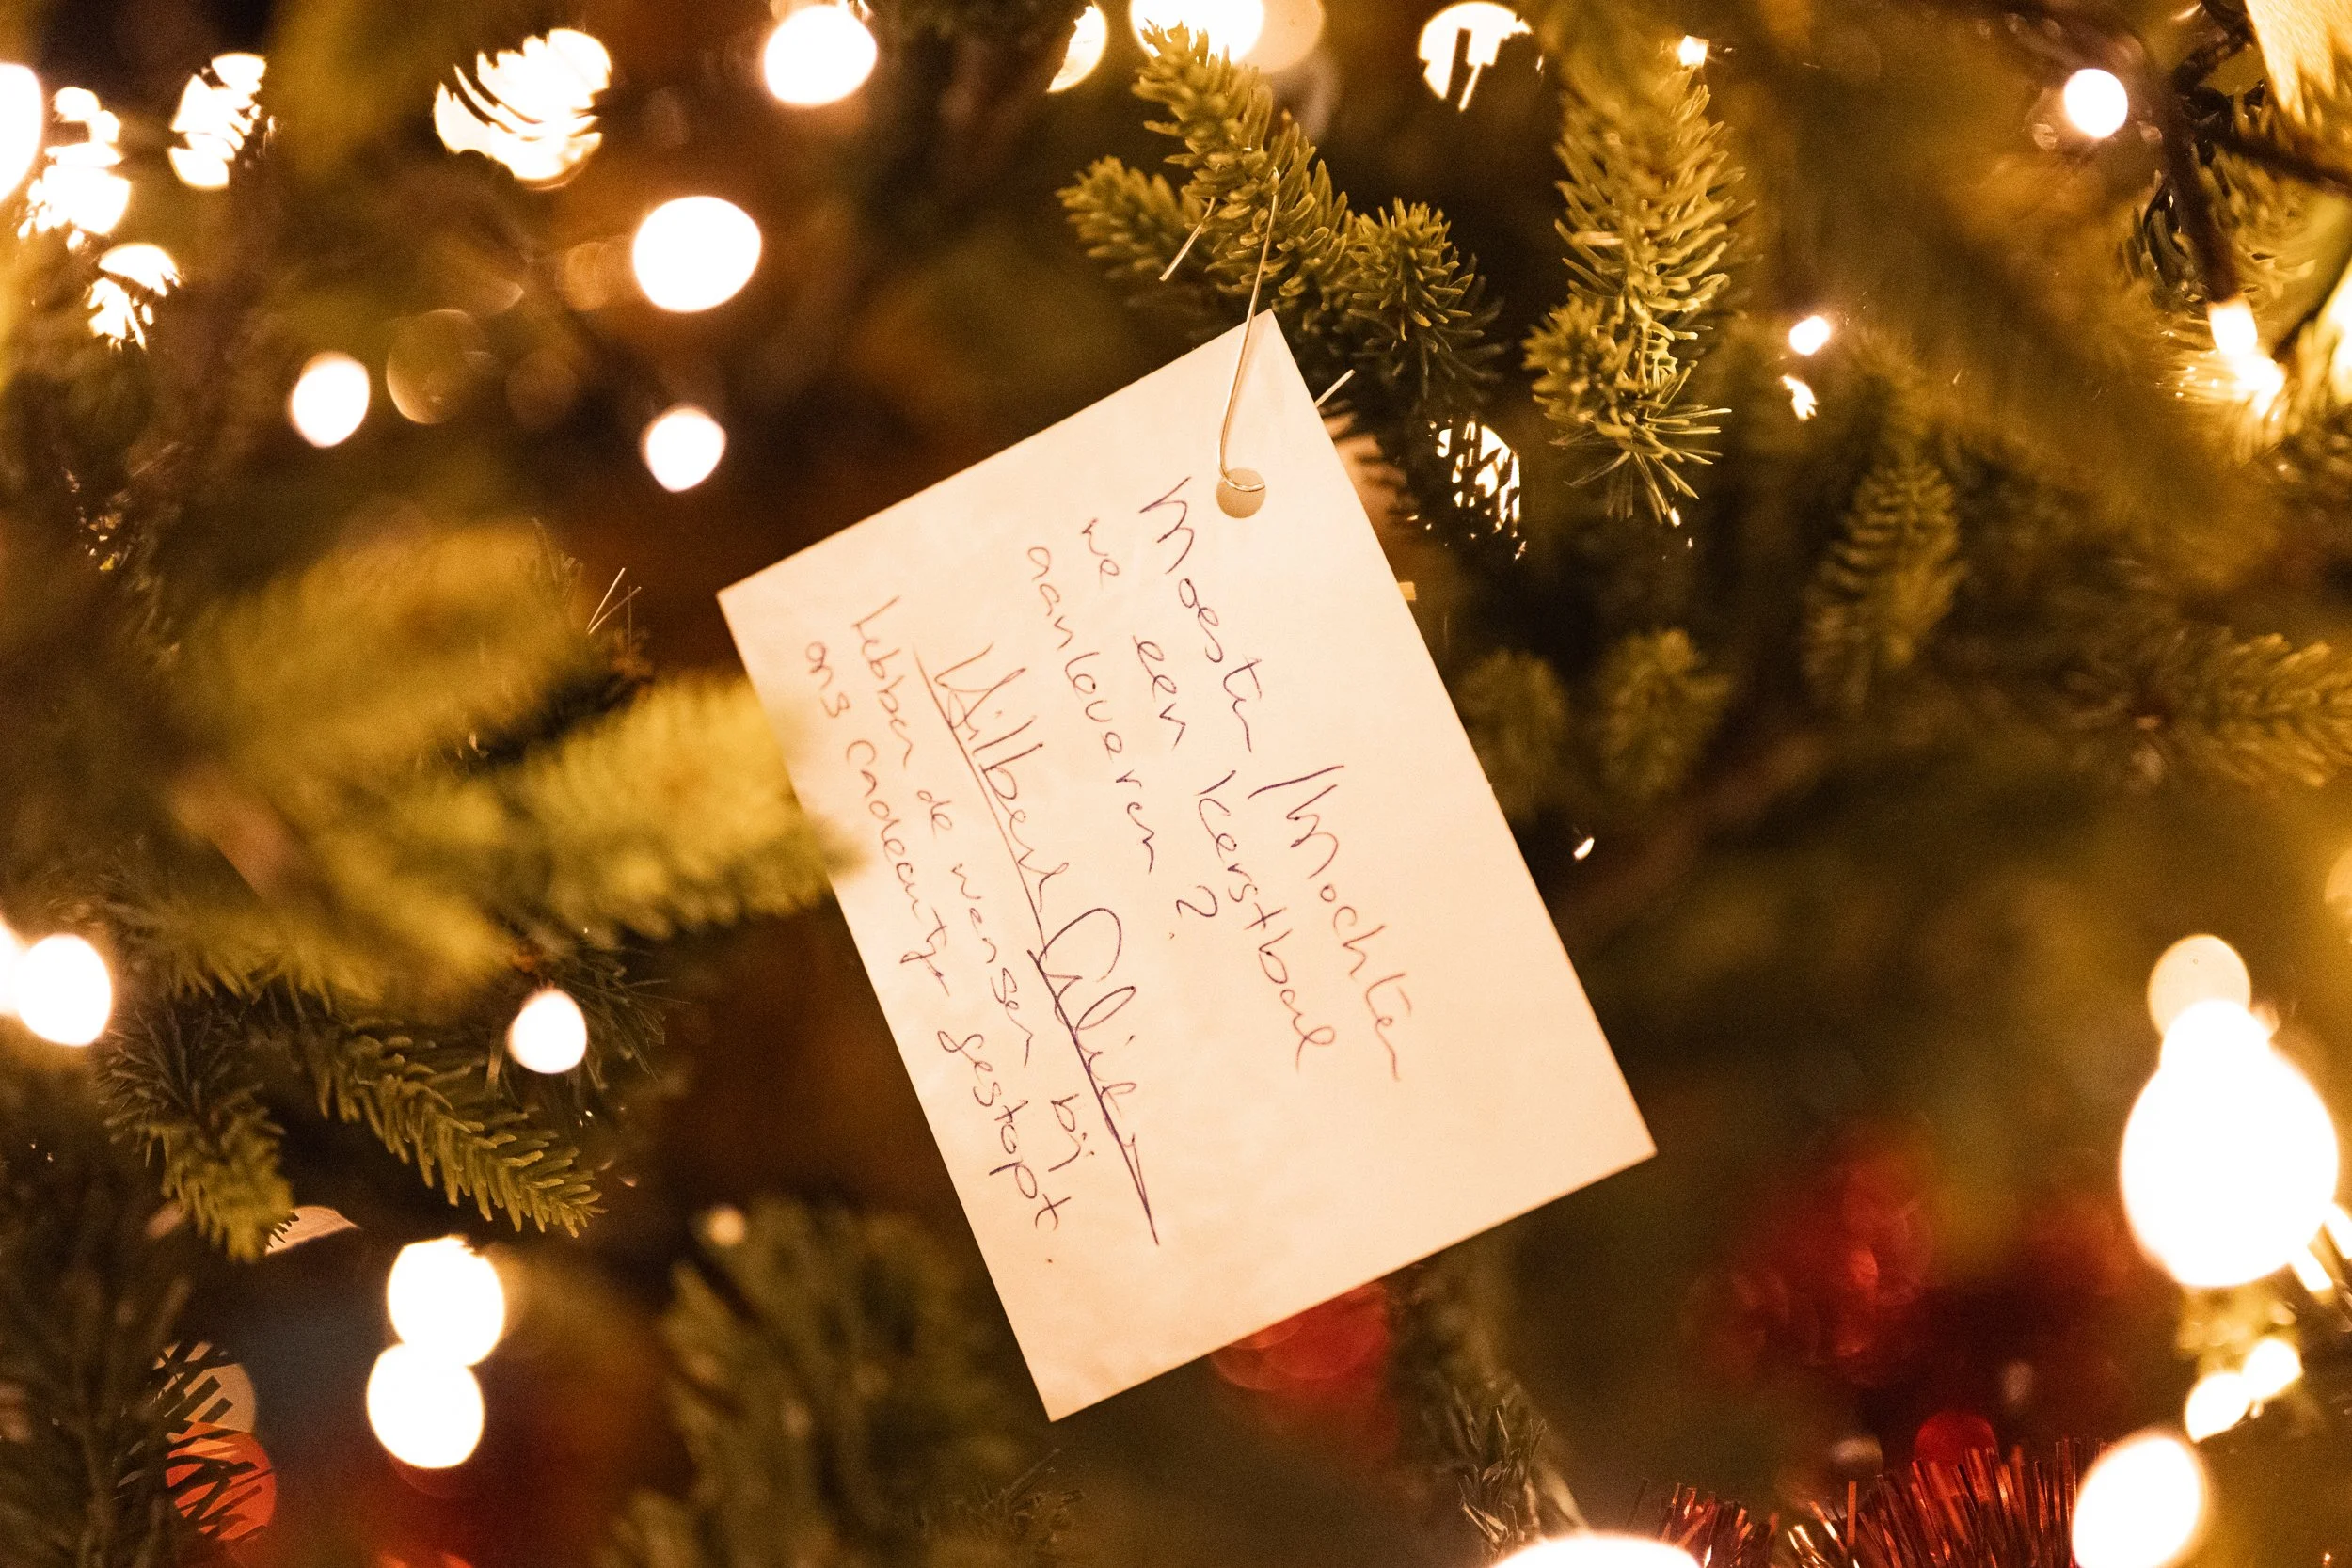 Moesten / mochten
we een kerstbal
aanleveren?
hebben de wensen bij
ons cadeautje gestopt.